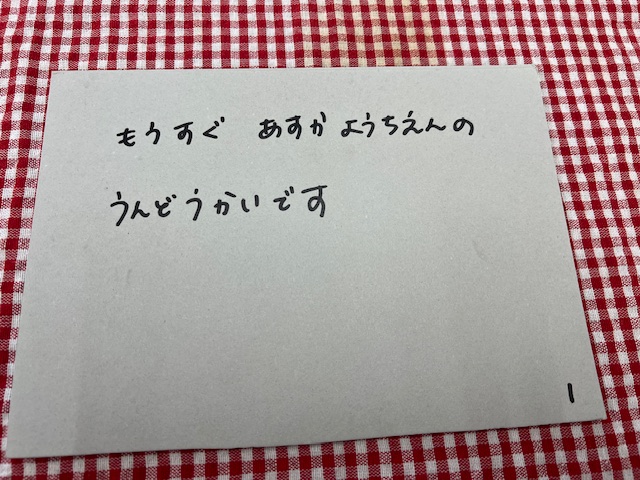 もうすぐ あすかようちえんの
うんどうかいです
1